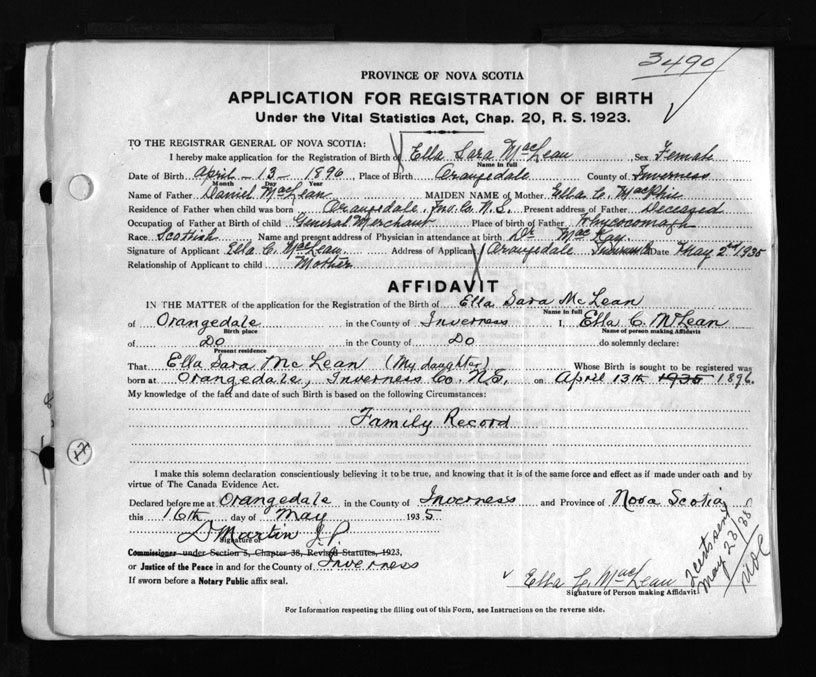 3490
PROVINCE OF NOVA SCOTIA
APPLICATION FOR REGISTRATION OF BIRTH
Under the Vital Statistics Act, Chap. 20, R. S. 1923.
TO THE REGISTRAR GENERAL OF NOVA SCOTIA:
I hereby make application for the Registration of Birth of Ella Sara MacLean Sex Female
Name in full
Date of Birth April - 13 - 1896 Place of Birth Orangedale County of Inverness
Month Day Year
Name of Father Daniel MacLean MAIDEN NAME of Mother Ella C. MacPhie
Residence of Father when child was born Orangedale Inv. Co. N.S. Present address of Father Deceased
Occupation of Father at Birth of child General Merchant Place of birth of Father Whycocomagh
Race Scottish Name and present address of Physician in attendance at birth Dr. MacKay
Signature of Applicant Ella C. MacLean Address of Applicant Orangedale Inverness Date May 2nd 1935
Relationship of Applicant to child Mother
AFFIDAVIT
IN THE MATTER of the application for the Registration of the Birth of Ella Sara McLean
Name in full
of Orangedale in the County of Inverness I, Ella C. McLean
Birth place Name of person making Affidavit
of Do in the County of Do do solemnly declare:
Present residence
That Ella Sara McLean (My daughter) Whose Birth is sought to be registered was
born at Orangedale, Inverness Co. N.S. on April 13th 1935 1896.
My knowledge of the fact and date of such Birth is based on the following Circumstances:
Family Record
I make this solemn declaration conscientiously believing it to be true, and knowing that it is of the same force and effect as if made under oath and by
virtue of The Canada Evidence Act.
Declared before me at Orangedale in the County of Inverness and Province of Nova Scotia
this 16th day of May 1935
D Martin J.P.
Signature of
Commissioner under Section 3, Chapter 38, Revised Statutes, 1923,
or Justice of the Peace in and for the County of Inverness
If sworn before a Notary Public affix seal.
Ella C. MacLean
Signature of Person making Affidavit
2 certs sent
May 23/35
For Information respecting the filling out of this Form, see Instructions on the reverse side.